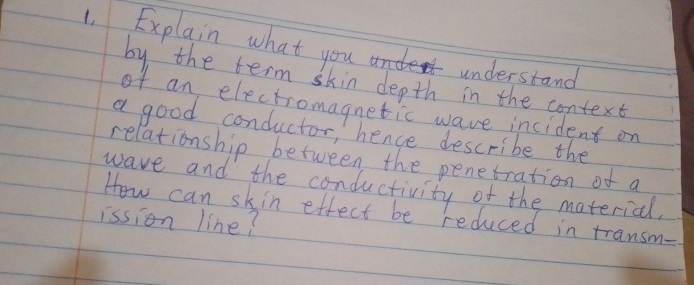 1. Explain what you undest understand
by the term skin depth in the context
of an electromagnetic wave incident on
a good conductor, hence describe the
relationship between the penetration of a
wave and the conductivity of the material.
How can skin effect be reduced in transm-
ission line?